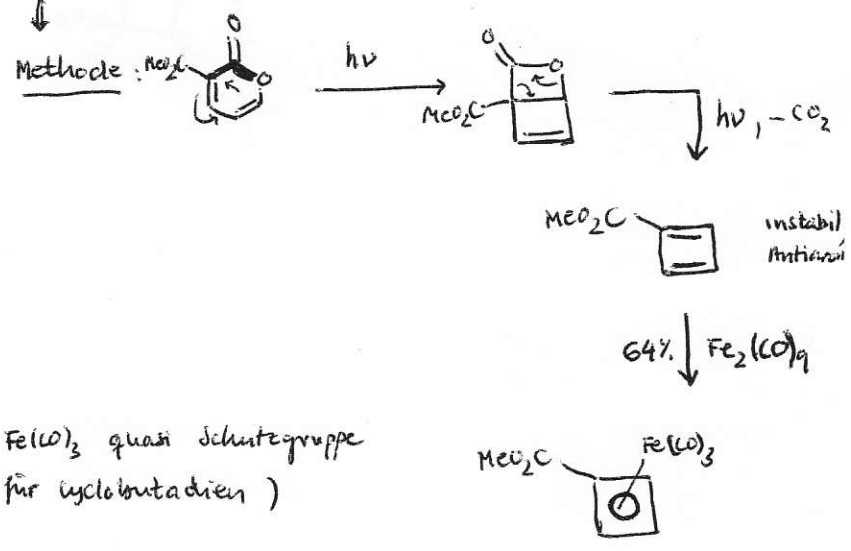 Methode : MeO₂C O O
hν
O O
MeO₂C
hν, -CO₂
MeO₂C
instabil
64% Fe₂(CO)₉
Fe(CO)₃ quasi Schutzgruppe
für Cyclobutadien )
MeO₂C Fe(CO)₃